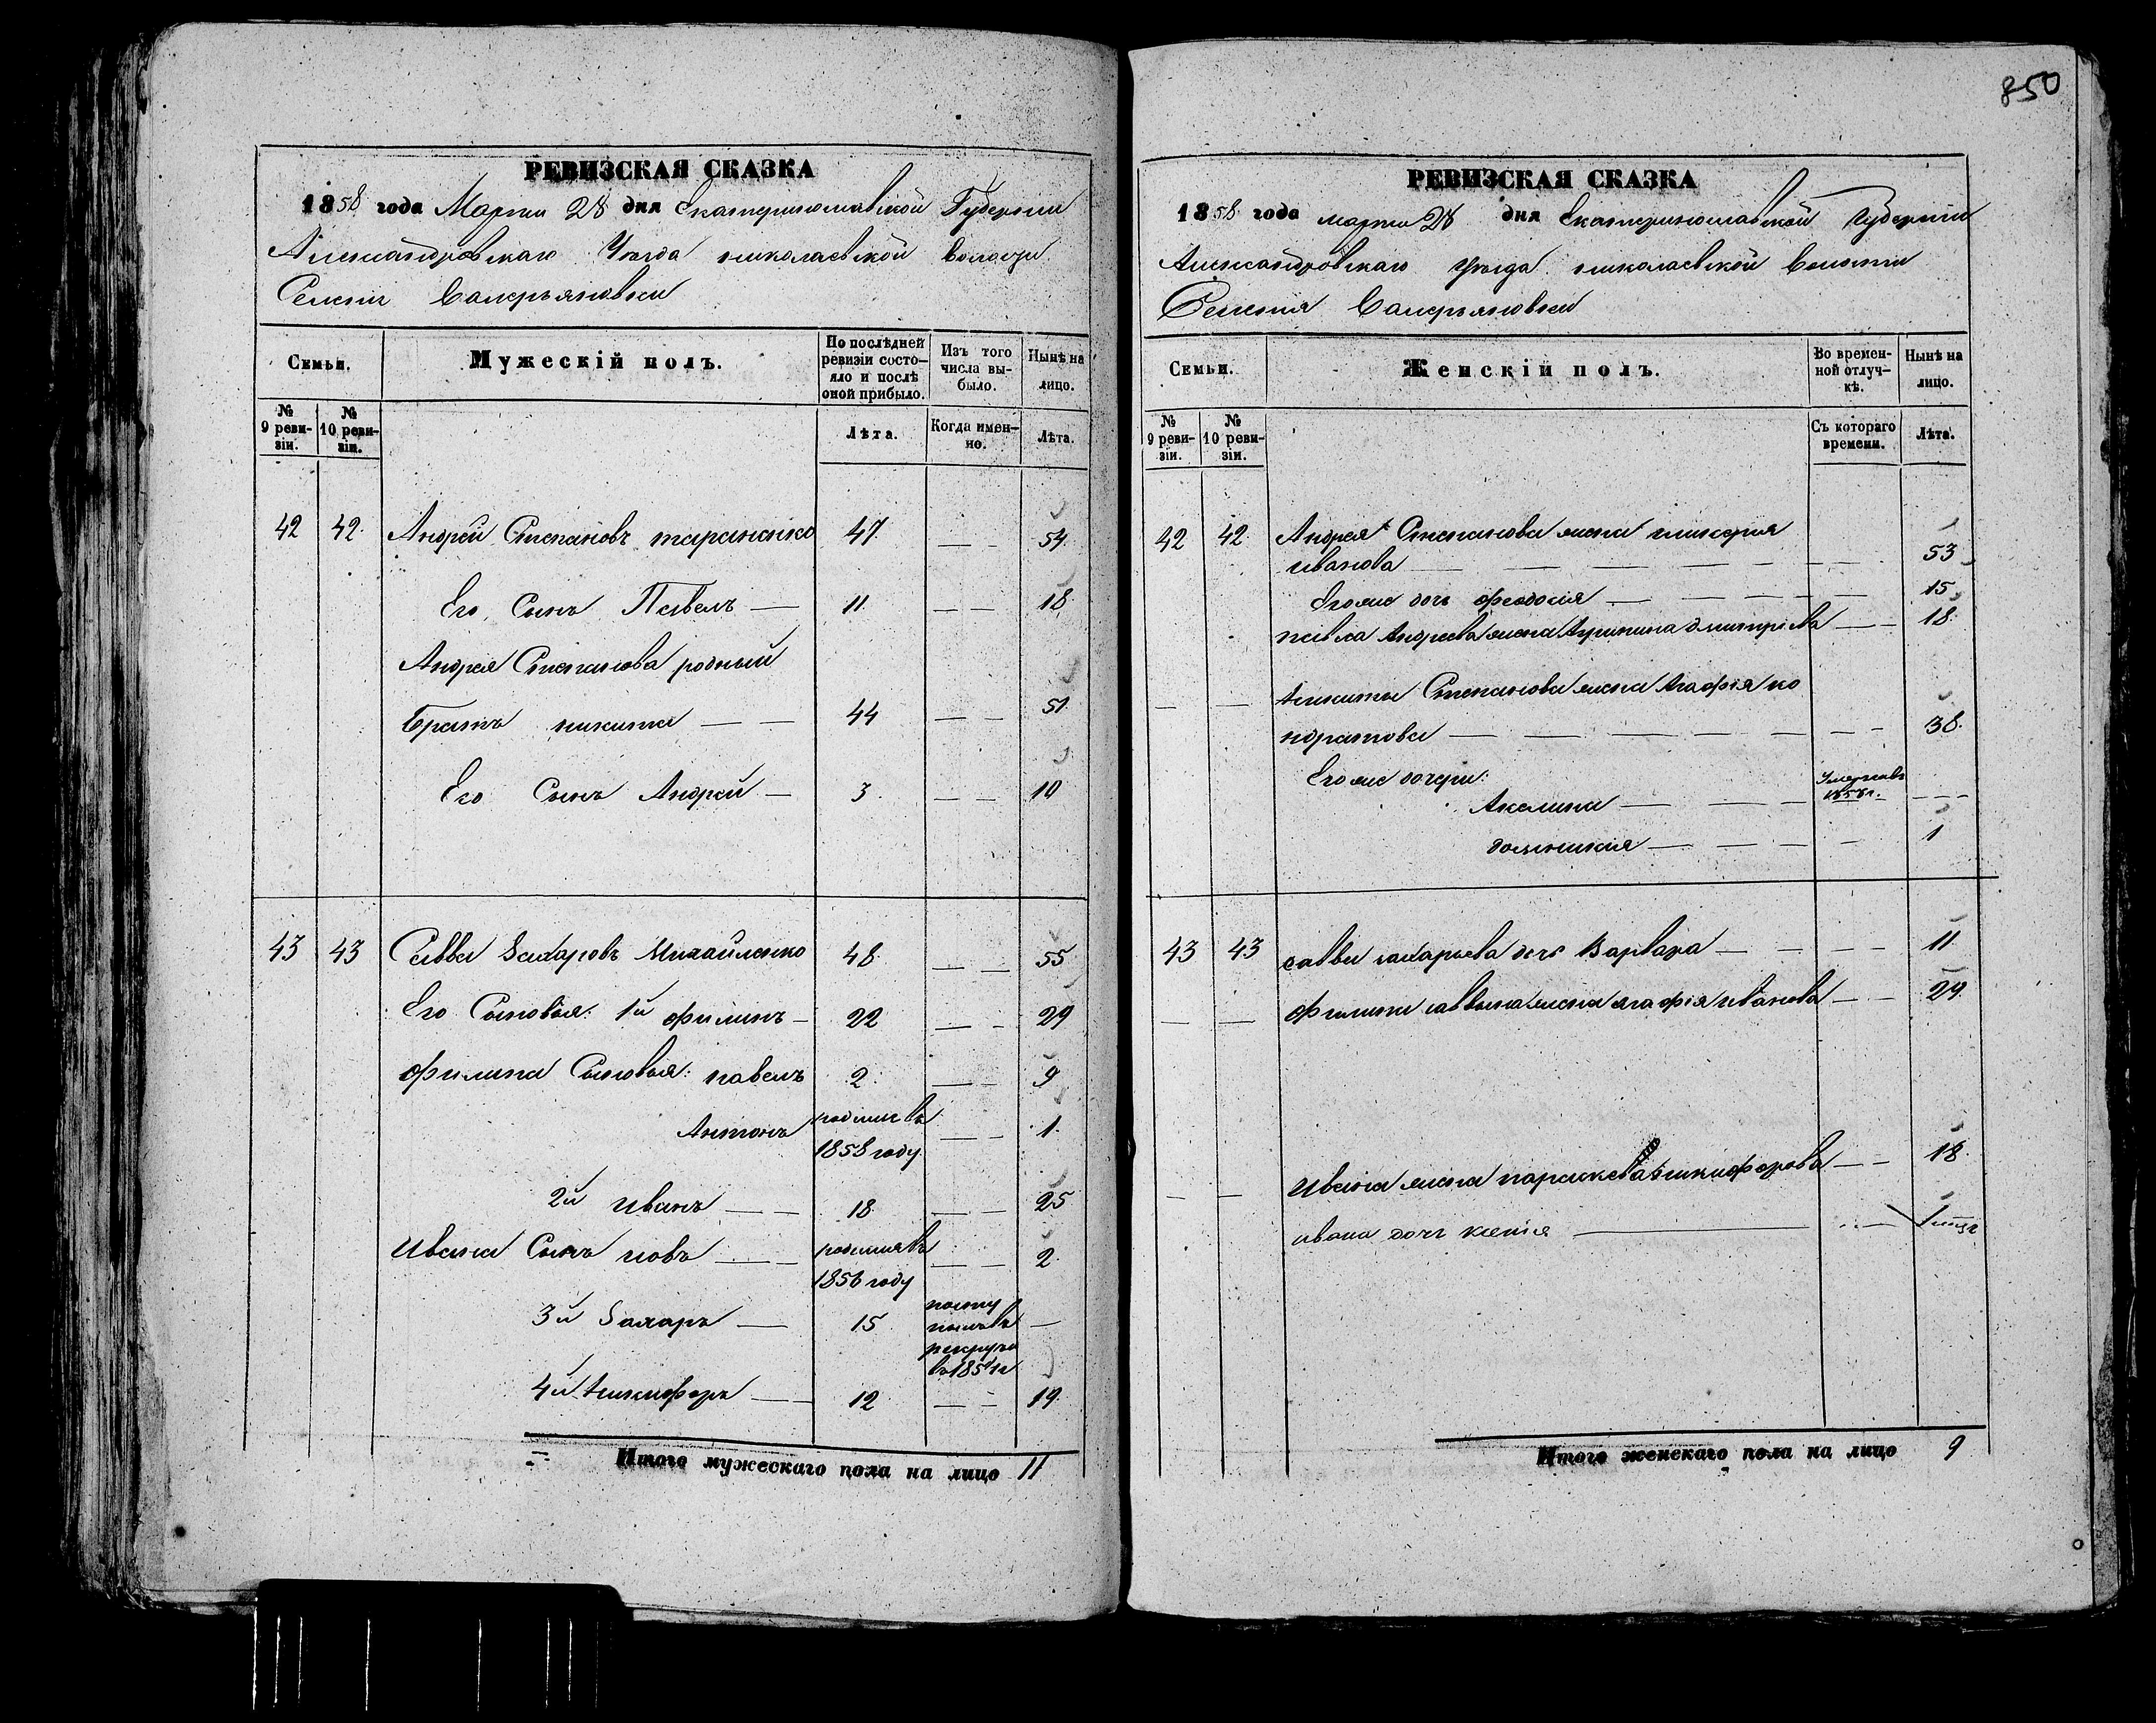 850
РЕВИЗСКАЯ СКАЗКА
1858 года Марта 28 дня Екатеринославской Губернии
Александровскаго Уѣзда николаевской волости
Селенія Валерьяновки
Семьи. Мужескій полъ. По послѣдней ревизіи состояло и послѣ оной прибыло. Изъ того числа выбыло. Нынѣ на лицо.
№ 9 ревизіи. № 10 ревизіи. Лѣта. Когда именно. Лѣта.
42 42. Андрей Степановъ тараненко 47 — - 54.
Его Сынъ Павелъ — 11. — - 18
Андрея Степанова родный
Братъ никита — — 44 — — 51.
Его Сынъ Андрей — 3. — — 10
43 43 Савва Захаровъ Михайленко 48 — — 55
Его Сыновья: 1й филипъ — 22 — - 29
филипа Сыновья: павелъ 2. — - 9
Антонъ родился въ 1858 году — - 1.
2й иванъ — — 18 — — 25
Ивана Сынъ иовъ — — родился въ 1856 году — — 2.
3й Захаръ — 15 посту пилъ въ рекруты въ 1854 г —
4й никифоръ — 12 — — 19.
Итого мужескаго пола на лицо 11
РЕВИЗСКАЯ СКАЗКА
1858 года марта 28 дня Екатеринославской Губернии
Александровскаго уѣзда николаевской Волости
Селения Валерьяновки
Семьи. Женскій полъ. Во временной отлучкѣ. Нынѣ на лицо.
№ 9 ревизіи. № 10 ревизіи. Съ котораго времени. Лѣта.
42 42. Андрея Степанова жена гликерия
иванова — — — — — — - 53
Егоже дочь феодосія — — — - — 15
павла Андреева жена Агрипина дмитріева — — 18.
— — никиты Степанова жена Агафія ко
ндратова — — — — — — - 38.
Егоже дочери:
Акелина — — — Умерла въ 1858 г. - - -
домникия — — — — 1
43 43 саввы захарьева дочь Варвара — — — — 11
— — филипа саввина жена агафія иванова — — 29.
— — ивана жена параскева никифорова — — 18.
ивана дочь ксенія — —
Итого женскаго пола на лицо 9